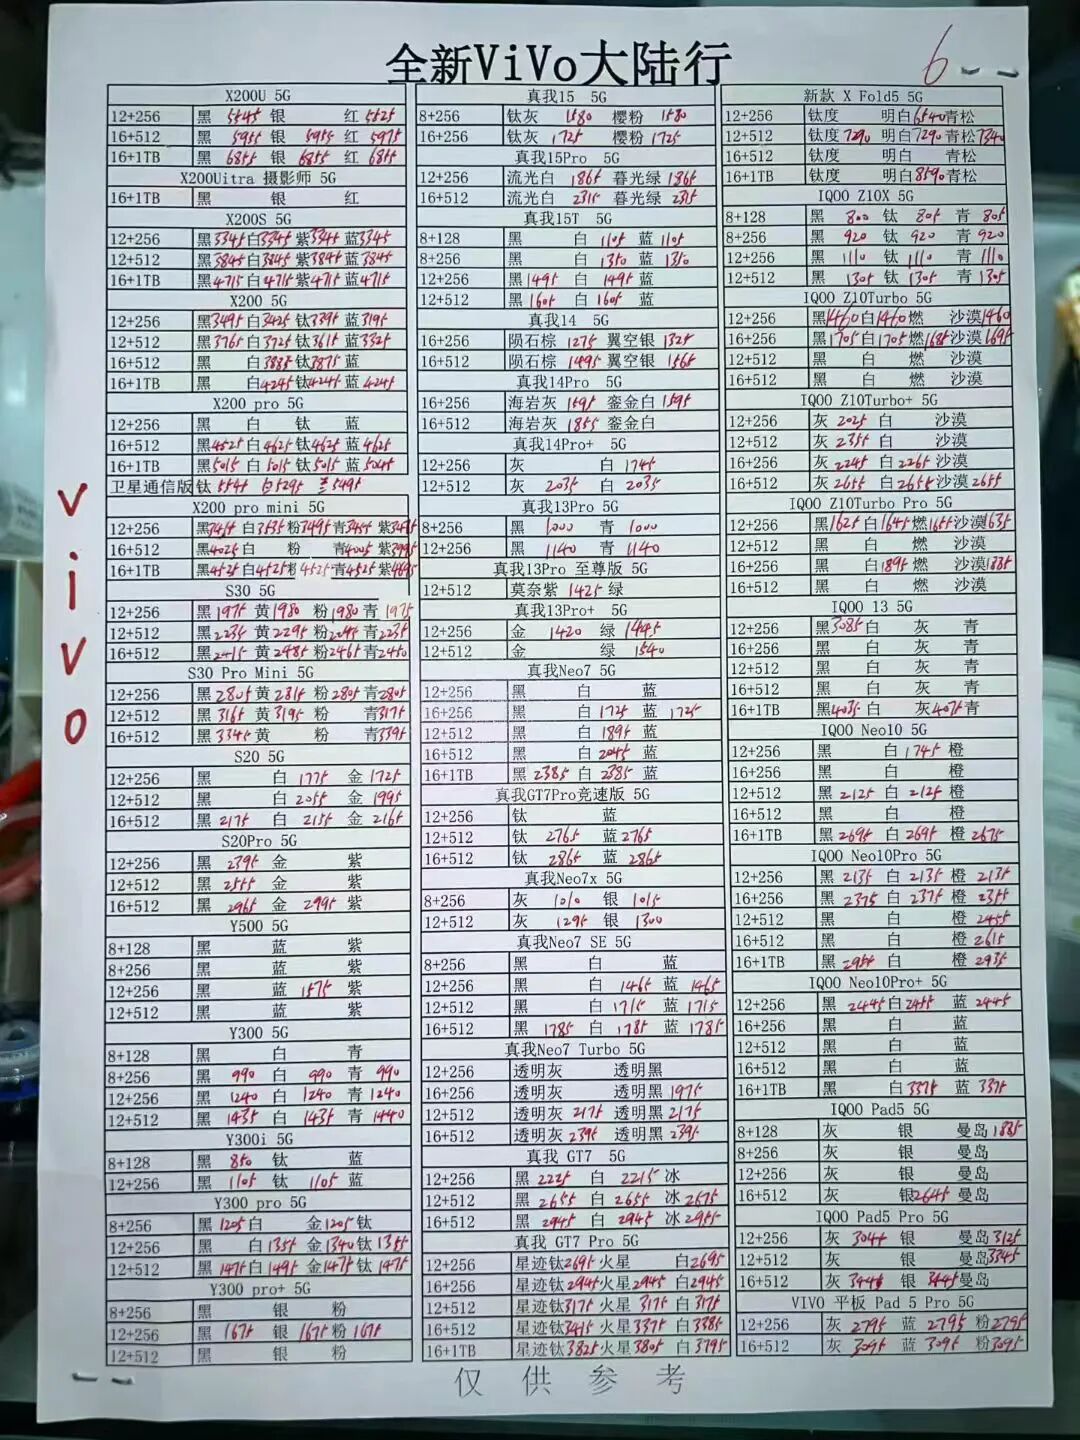 全新ViVo大陆行
6
vivo
X200U 5G
12+256 黑 5545 银 红 5525
16+512 黑 5955 银 5955 红 5975
16+1TB 黑 6855 银 6855 红 6855
X200Uitra 摄影师 5G
16+1TB 黑 银 红
X200S 5G
12+256 黑3345白3345紫3345蓝3345
12+512 黑3845白3845紫3845蓝3845
16+1TB 黑4715白4715紫4715蓝4715
X200 5G
12+256 黑3495白3425钛3395蓝3195
12+512 黑3765白3725钛3615蓝3325
16+512 黑 白3885钛3875蓝
16+1TB 黑 白4245钛4245蓝 4245
X200 pro 5G
12+256 黑 白 钛 蓝
16+512 黑4525白4625钛4625蓝4625
16+1TB 黑5015白5015钛5015蓝5045
卫星通信版 钛 5545 白5295 5495
X200 pro mini 5G
12+256 黑3455白3535粉3495青3455紫3435
16+512 黑4025白 粉 青4005紫3995
16+1TB 黑4525白4525粉4525青4525紫4695
S30 5G
12+256 黑1975黄1980粉1980青1975
12+512 黑2235黄2295粉2245青2235
16+512 黑2415黄2485粉2465青2450
S30 Pro Mini 5G
12+256 黑2805黄2815粉2805青2805
12+512 黑3165黄3195粉 青3175
16+512 黑3345黄 粉 青3395
S20 5G
12+256 黑 白 1775 金 1725
12+512 黑 白 2055 金 1995
16+512 黑 2175 白 2155 金 2165
S20Pro 5G
12+256 黑 2395 金 紫
12+512 黑 2555 金 紫
16+512 黑 2965 金 2995 紫
Y500 5G
8+128 黑 蓝 紫
8+256 黑 蓝 紫
12+256 黑 蓝 1575 紫
12+512 黑 蓝 紫
Y300 5G
8+128 黑 白 青
8+256 黑 990 白 990 青 990
12+256 黑 1240 白 1240 青 1240
12+512 黑 1435 白 1435 青 1440
Y300i 5G
8+128 黑 850 钛 蓝
12+256 黑 1105 钛 1105 蓝
Y300 pro 5G
8+256 黑 1205白 金1205钛
12+256 黑 白1355金1340钛 1385
12+512 黑1475白1495金1475钛 1475
Y300 pro+ 5G
8+256 黑 银 粉
12+256 黑 1675 银 1675粉 1675
12+512 黑 银 粉
真我15 5G
8+256 钛灰 1580 樱粉 1580
16+256 钛灰 1725 樱粉 1725
真我15Pro 5G
12+256 流光白 1865 暮光绿 1865
16+512 流光白 2315 暮光绿 2315
真我15T 5G
8+128 黑 白 1105 蓝 1105
8+256 黑 白 1350 蓝 1350
12+256 黑1495 白 1495 蓝
12+512 黑1605 白 1605 蓝
真我14 5G
16+256 陨石棕 1275 翼空银 1325
16+512 陨石棕 1495 翼空银 1565
真我14Pro 5G
16+256 海岩灰 1595 銮金白 1595
16+512 海岩灰 1855 銮金白
真我14Pro+ 5G
12+256 灰 白 1745
12+512 灰 2035 白 2035
真我13Pro 5G
8+256 黑 1000 青 1000
12+256 黑 1140 青 1140
真我13Pro 至尊版 5G
12+512 莫奈紫 1425 绿
真我13Pro+ 5G
12+256 金 1420 绿 1445
12+512 金 绿 1540
真我Neo7 5G
12+256 黑 白 蓝
16+256 黑 白 1725 蓝 1725
12+512 黑 白 1895 蓝
16+512 黑 白 2045 蓝
16+1TB 黑 2385 白 2385 蓝
真我GT7Pro竞速版 5G
12+256 钛 蓝
12+512 钛 2765 蓝2765
16+512 钛 2865 蓝 2865
真我Neo7x 5G
8+256 灰 1010 银 1015
12+512 灰 1295 银 1300
真我Neo7 SE 5G
8+256 黑 白 蓝
12+256 黑 白 1465 蓝 1465
12+512 黑 白 1715 蓝 1715
16+512 黑 1785 白 1785 蓝 1785
真我Neo7 Turbo 5G
12+256 透明灰 透明黑
16+256 透明灰 透明黑 1975
12+512 透明灰 2175 透明黑 2175
16+512 透明灰 2395 透明黑 2395
真我 GT7 5G
12+256 黑 2225 白 2215 冰
12+512 黑 2655 白 2655 冰 2675
16+512 黑 2945 白 2945 冰2955
真我 GT7 Pro 5G
12+256 星迹钛2695火星 白2695
16+256 星迹钛2945火星2945 白2945
12+512 星迹钛3175火星3175白3175
16+512 星迹钛3415火星3375白3385
16+1TB 星迹钛3825火星3805白3795
新款 X Fold5 5G
12+256 钛度 明白6540青松
12+512 钛度 7290 明白7290青松7340
16+512 钛度 明白 青松
16+1TB 钛度 明白8590青松
IQOO Z10X 5G
8+128 黑 800 钛 805 青 805
8+256 黑 920 钛 920 青 920
12+256 黑 1110 钛 1110 青 1110
12+512 黑 1305 钛 1305 青 1305
IQOO Z10Turbo 5G
12+256 黑1460白1460燃 沙漠1460
16+256 黑1705白1705燃1685沙漠1695
12+512 黑 白 燃 沙漠
16+512 黑 白 燃 沙漠
IQOO Z10Turbo+ 5G
12+256 灰 2025 白 沙漠
12+512 灰 2355 白 沙漠
16+256 灰 2245 白 2265 沙漠
16+512 灰 2655 白 2655沙漠2655
IQOO Z10Turbo Pro 5G
12+256 黑1625白1645燃1655沙漠1635
12+512 黑 白 燃 沙漠
16+256 黑 白1895燃 沙漠1885
16+512 黑 白 燃 沙漠
IQOO 13 5G
12+256 黑3085白 灰 青
16+256 黑 白 灰 青
12+512 黑 白 灰 青
16+512 黑 白 灰 青
16+1TB 黑4035白 灰4075青
IQOO Neo10 5G
12+256 黑 白 1745 橙
16+256 黑 白 橙
12+512 黑 2125 白 2125 橙
16+512 黑 白 橙
16+1TB 黑 2695 白 2695 橙 2675
IQOO Neo10Pro 5G
12+256 黑 2135 白 2135 橙 2135
16+256 黑 2375 白 2375 橙 2355
12+512 黑 白 橙 2455
16+512 黑 白 橙 2615
16+1TB 黑 2955 白 橙 2935
IQOO Neo10Pro+ 5G
12+256 黑 2445白2455 蓝 2445
16+256 黑 白 蓝
12+512 黑 白 蓝
16+512 黑 白 蓝
16+1TB 黑 白3375 蓝 3375
IQOO Pad5 5G
8+128 灰 银 曼岛1885
8+256 灰 银 曼岛
12+256 灰 银 曼岛
16+512 灰 银2645曼岛
IQOO Pad5 Pro 5G
12+256 灰 3045 银 曼岛3125
12+512 灰 银 曼岛3345
16+512 灰 3445 银 3445曼岛
VIVO 平板 Pad 5 Pro 5G
12+256 灰 2795 蓝 2795 粉2795
16+512 灰 3095 蓝 3095 粉3095
仅供参考